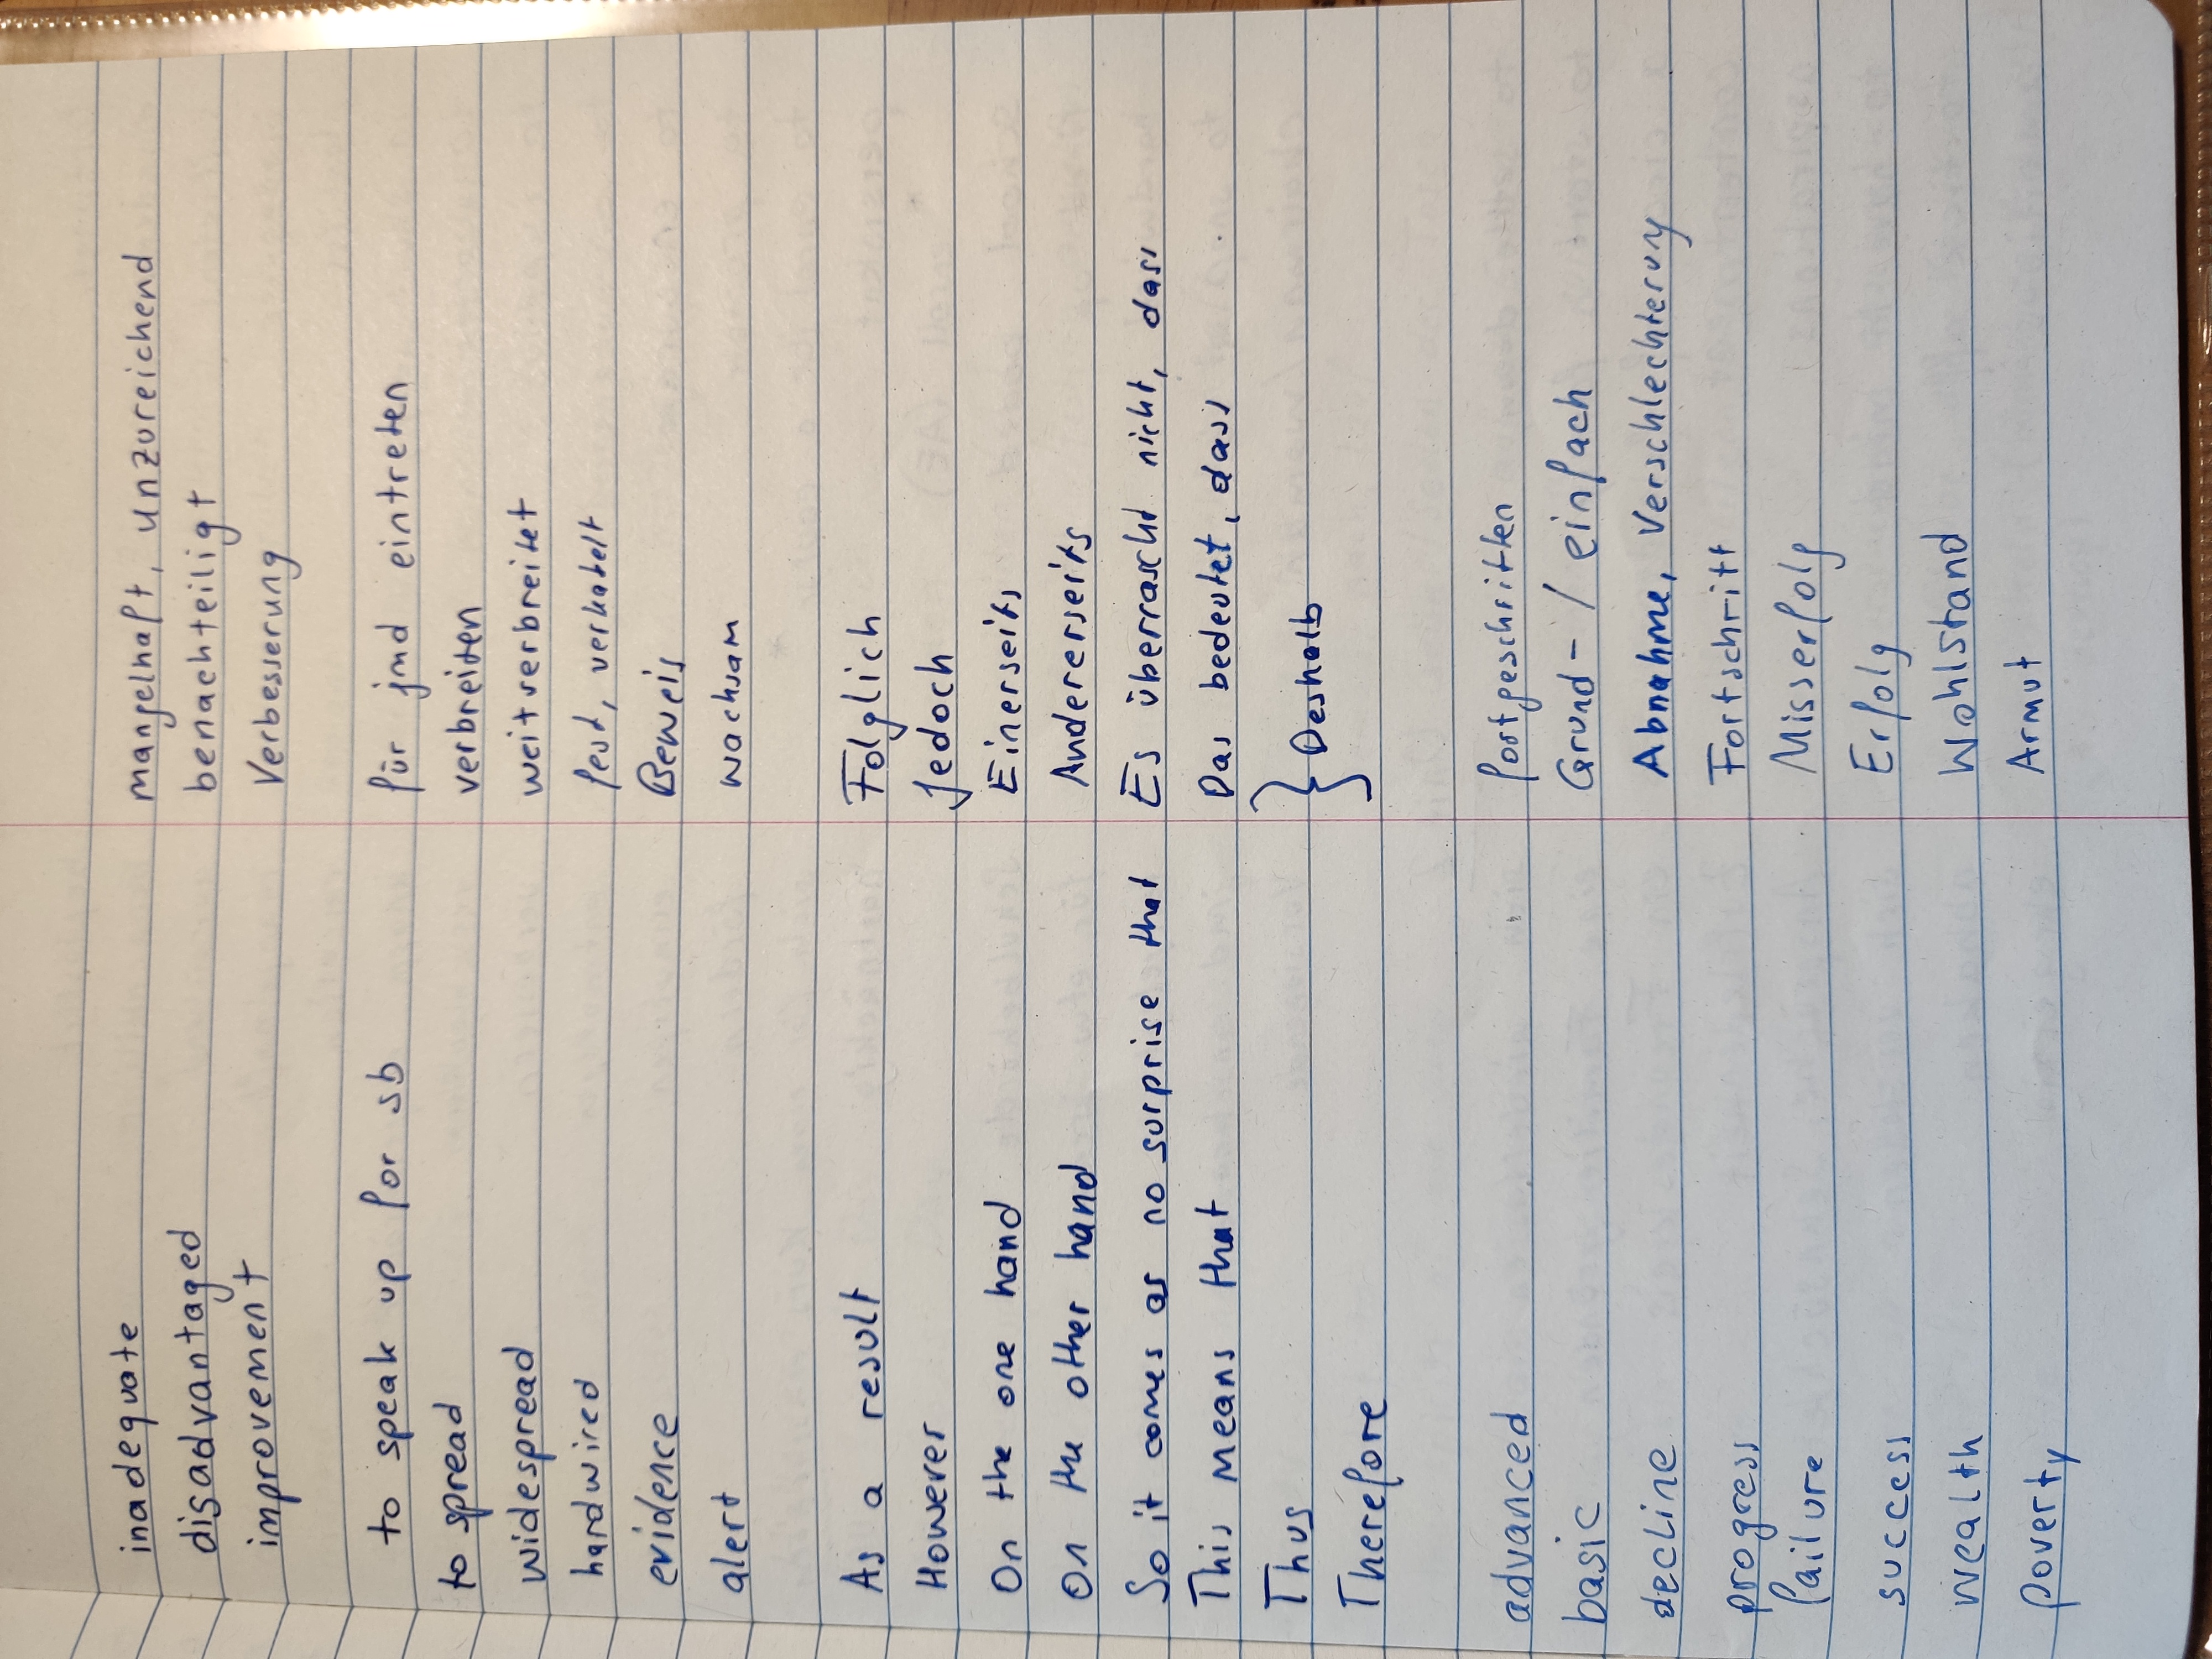 inadequate mangelhaft, unzureichend
disadvantaged benachteiligt
improvement Verbesserung
to speak up for sb für jmd eintreten
to spread verbreiten
widespread weitverbreitet
hardwired fest, verkabelt
evidence Beweis
alert wachsam
As a result Folglich
However Jedoch
On the one hand Einerseits
On the other hand Andererseits
So it comes as no surprise that Es überrascht nicht, dass
This means that Das bedeutet, dass
Thus
} Deshalb
Therefore
advanced fortgeschritten
basic Grund- / einfach
decline Abnahme, Verschlechterung
progress Fortschritt
failure Misserfolg
success Erfolg
wealth Wohlstand
poverty Armut